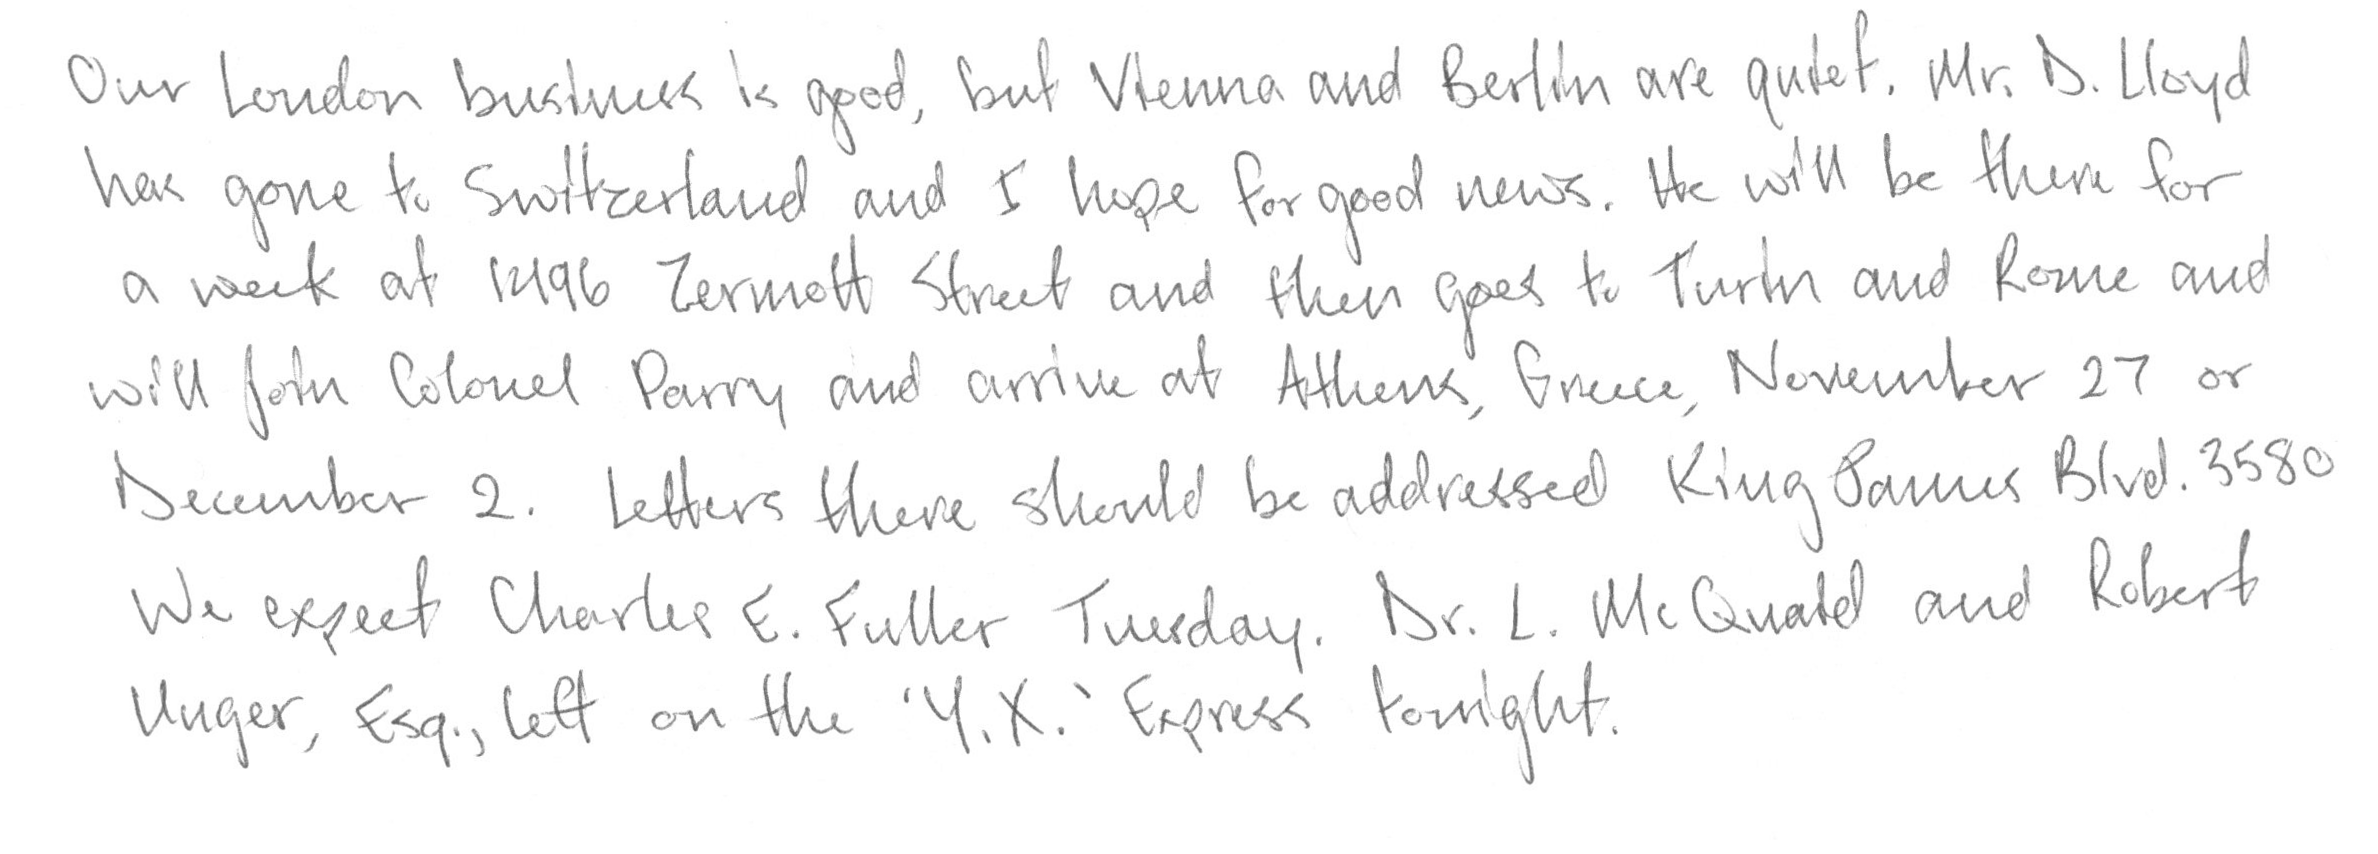 Our London business is good, but Vienna and Berlin are quiet. Mr. D. Lloyd
has gone to Switzerland and I hope for good news. He will be there for
a week at 12496 Zermott Street and then goes to Turin and Rome and
will join Colonel Parry and arrive at Athens, Greece, November 27 or
December 2. Letters there should be addressed King James Blvd. 3580
We expect Charles E. Fuller Tuesday. Dr. L. McQuaid and Robert
Unger, Esq., left on the 'Y.X.' Express tonight.